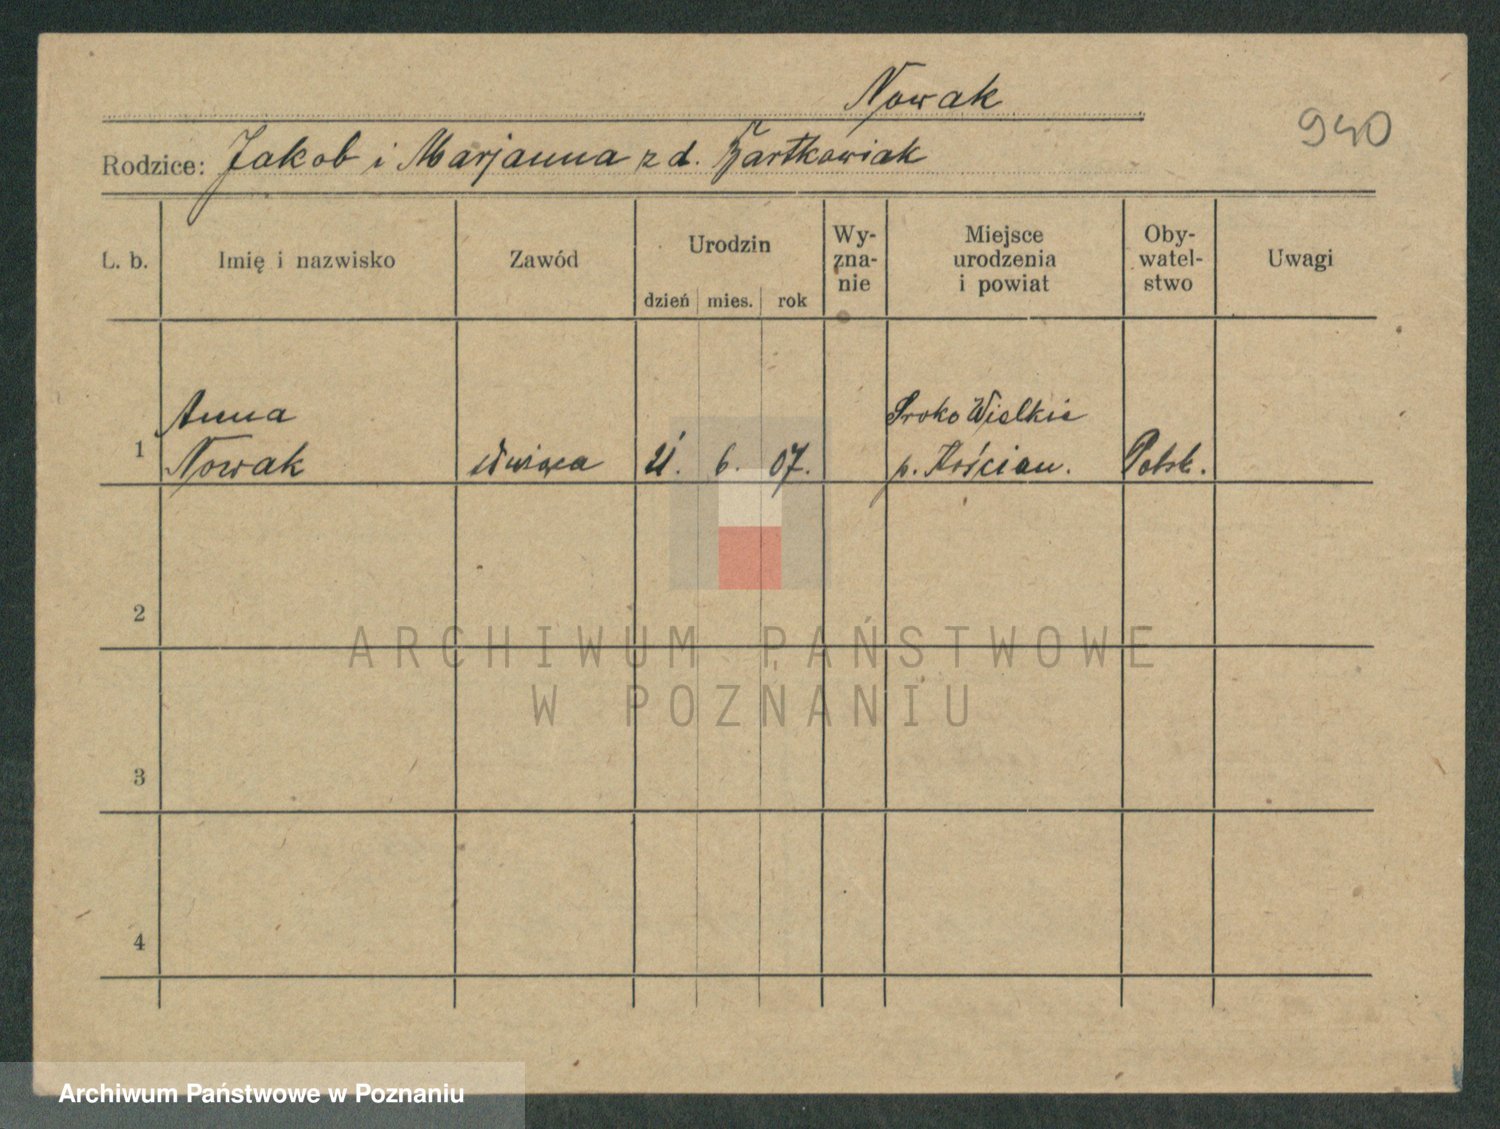 Nowak
940
Rodzice: Jakob i Marjanna z d. Bartkowiak
L. b. Imię i nazwisko Zawód Urodzin dzień mies. rok Wy-zna-nie Miejsce urodzenia i powiat Oby-watel-stwo Uwagi
Anna Sroko Wielkie
1 Nowak służąca 21. 6. 07. p. Kościan. Polsk.
2
ARCHIWUM PAŃSTWOWE
W POZNANIU
3
4
Archiwum Państwowe w Poznaniu